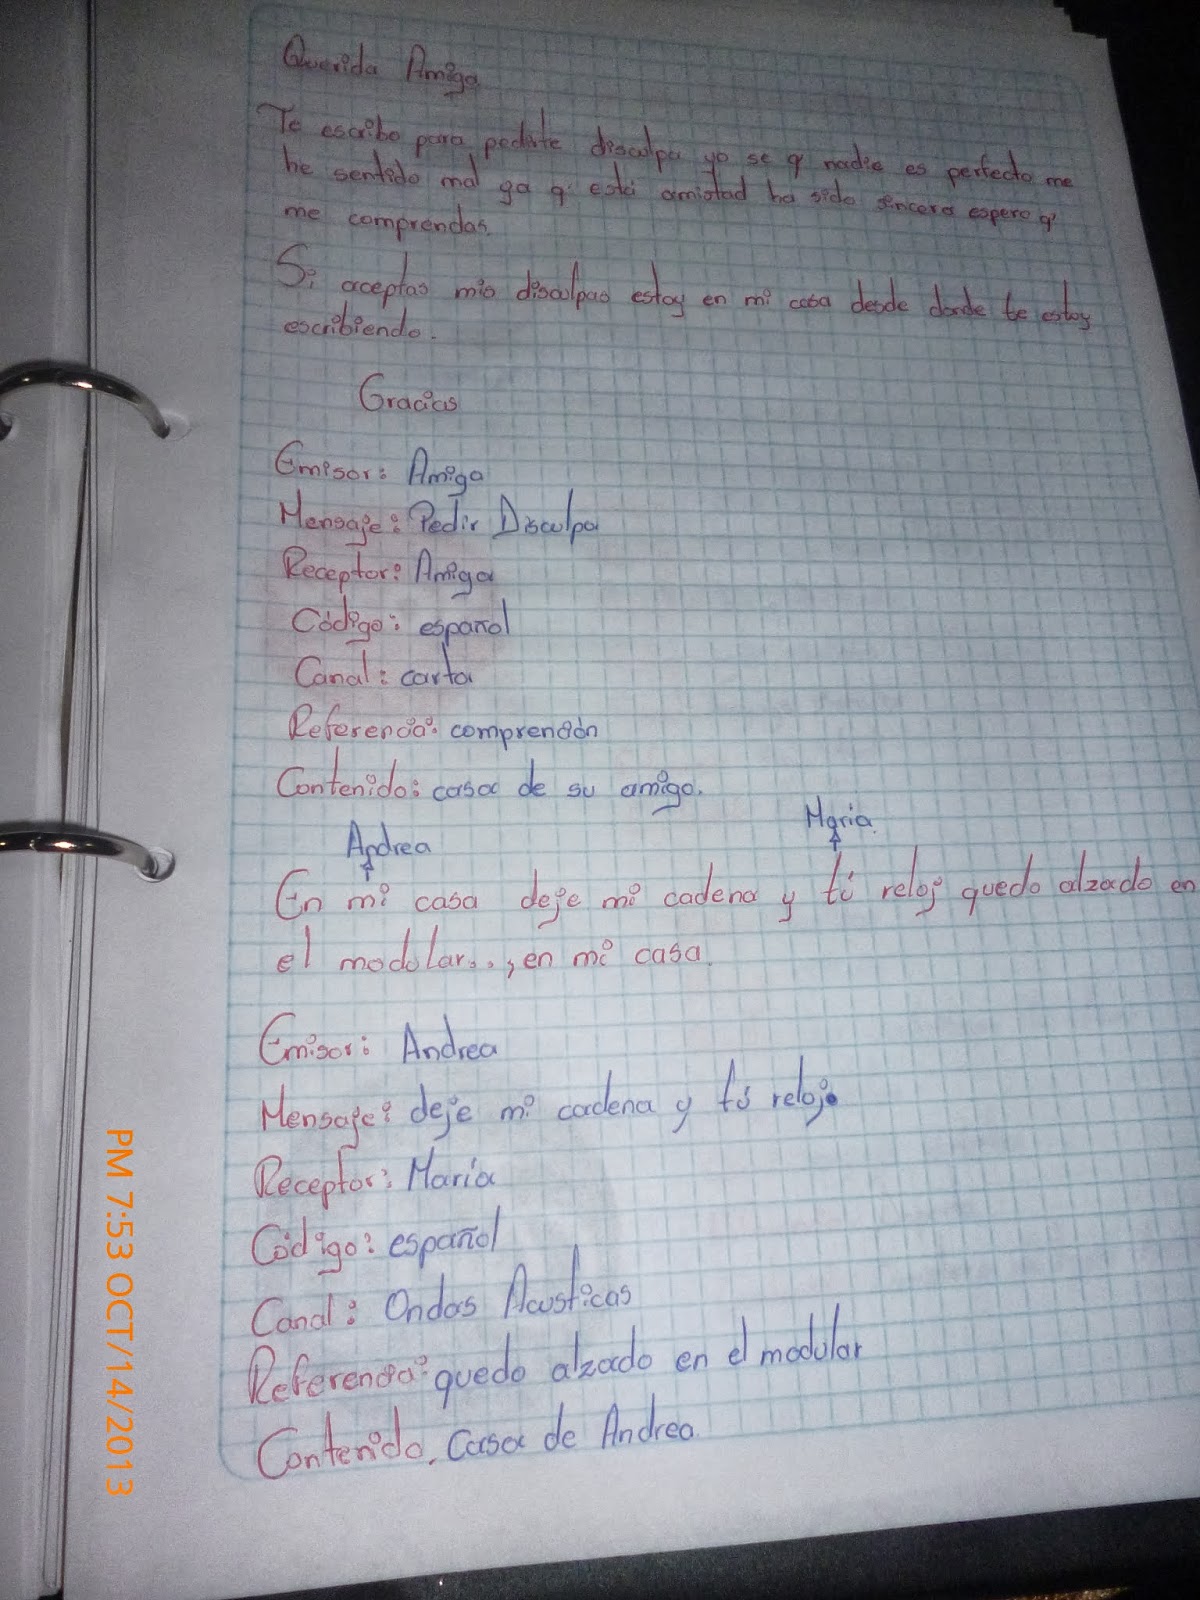 Querida Amiga
Te escribo para pedirte disculpa yo se q' nadie es perfecto me
he sentido mal ya q' está amistad ha sido sincera espero q'
me comprendas.
Si aceptas mis disculpas estoy en mi casa desde donde te estoy
escribiendo.
Gracias
Emisor: Amiga
Mensaje: Pedir Disculpa
Receptor: Amiga
Código: español
Canal: carta
Referencia: comprención
Contenido: casa de su amigo.
Andrea Maria
En mi casa deje mi cadena y tú reloj quedo alzado en
el modular..., en mi casa.
Emisor: Andrea
Mensaje: deje mi cadena y tú reloj.
Receptor: Maria
Código: español
Canal: Ondas Acusticas
Referencia: quedo alzado en el modular
Contenido. Casa de Andrea.
PM 7:53 OCT/14/2013